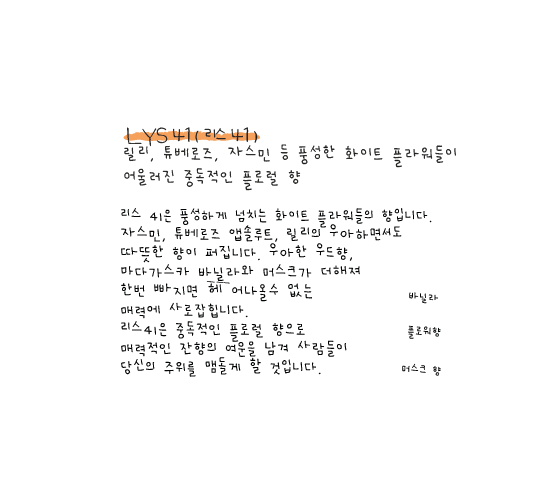 LYS 41 ( 리스 41 )
릴리, 튜베로즈, 자스민 등 풍성한 화이트 플라워들이
어울러진 중독적인 플로럴 향
리스 41은 풍성하게 넘치는 화이트 플라워들의 향입니다.
자스민, 튜베로즈 앱솔루트, 릴리의 우아하면서도
따뜻한 향이 퍼집니다. 우아한 우드향,
마다가스카 바닐라와 머스크가 더해져
한번 빠지면 헤어나올수 없는
매력에 사로잡힙니다.
리스41은 중독적인 플로럴 향으로
매력적인 잔향의 여운을 남겨 사람들이
당신의 주위를 맴돌게 할 것입니다.
바닐라
플로워향
머스크 향